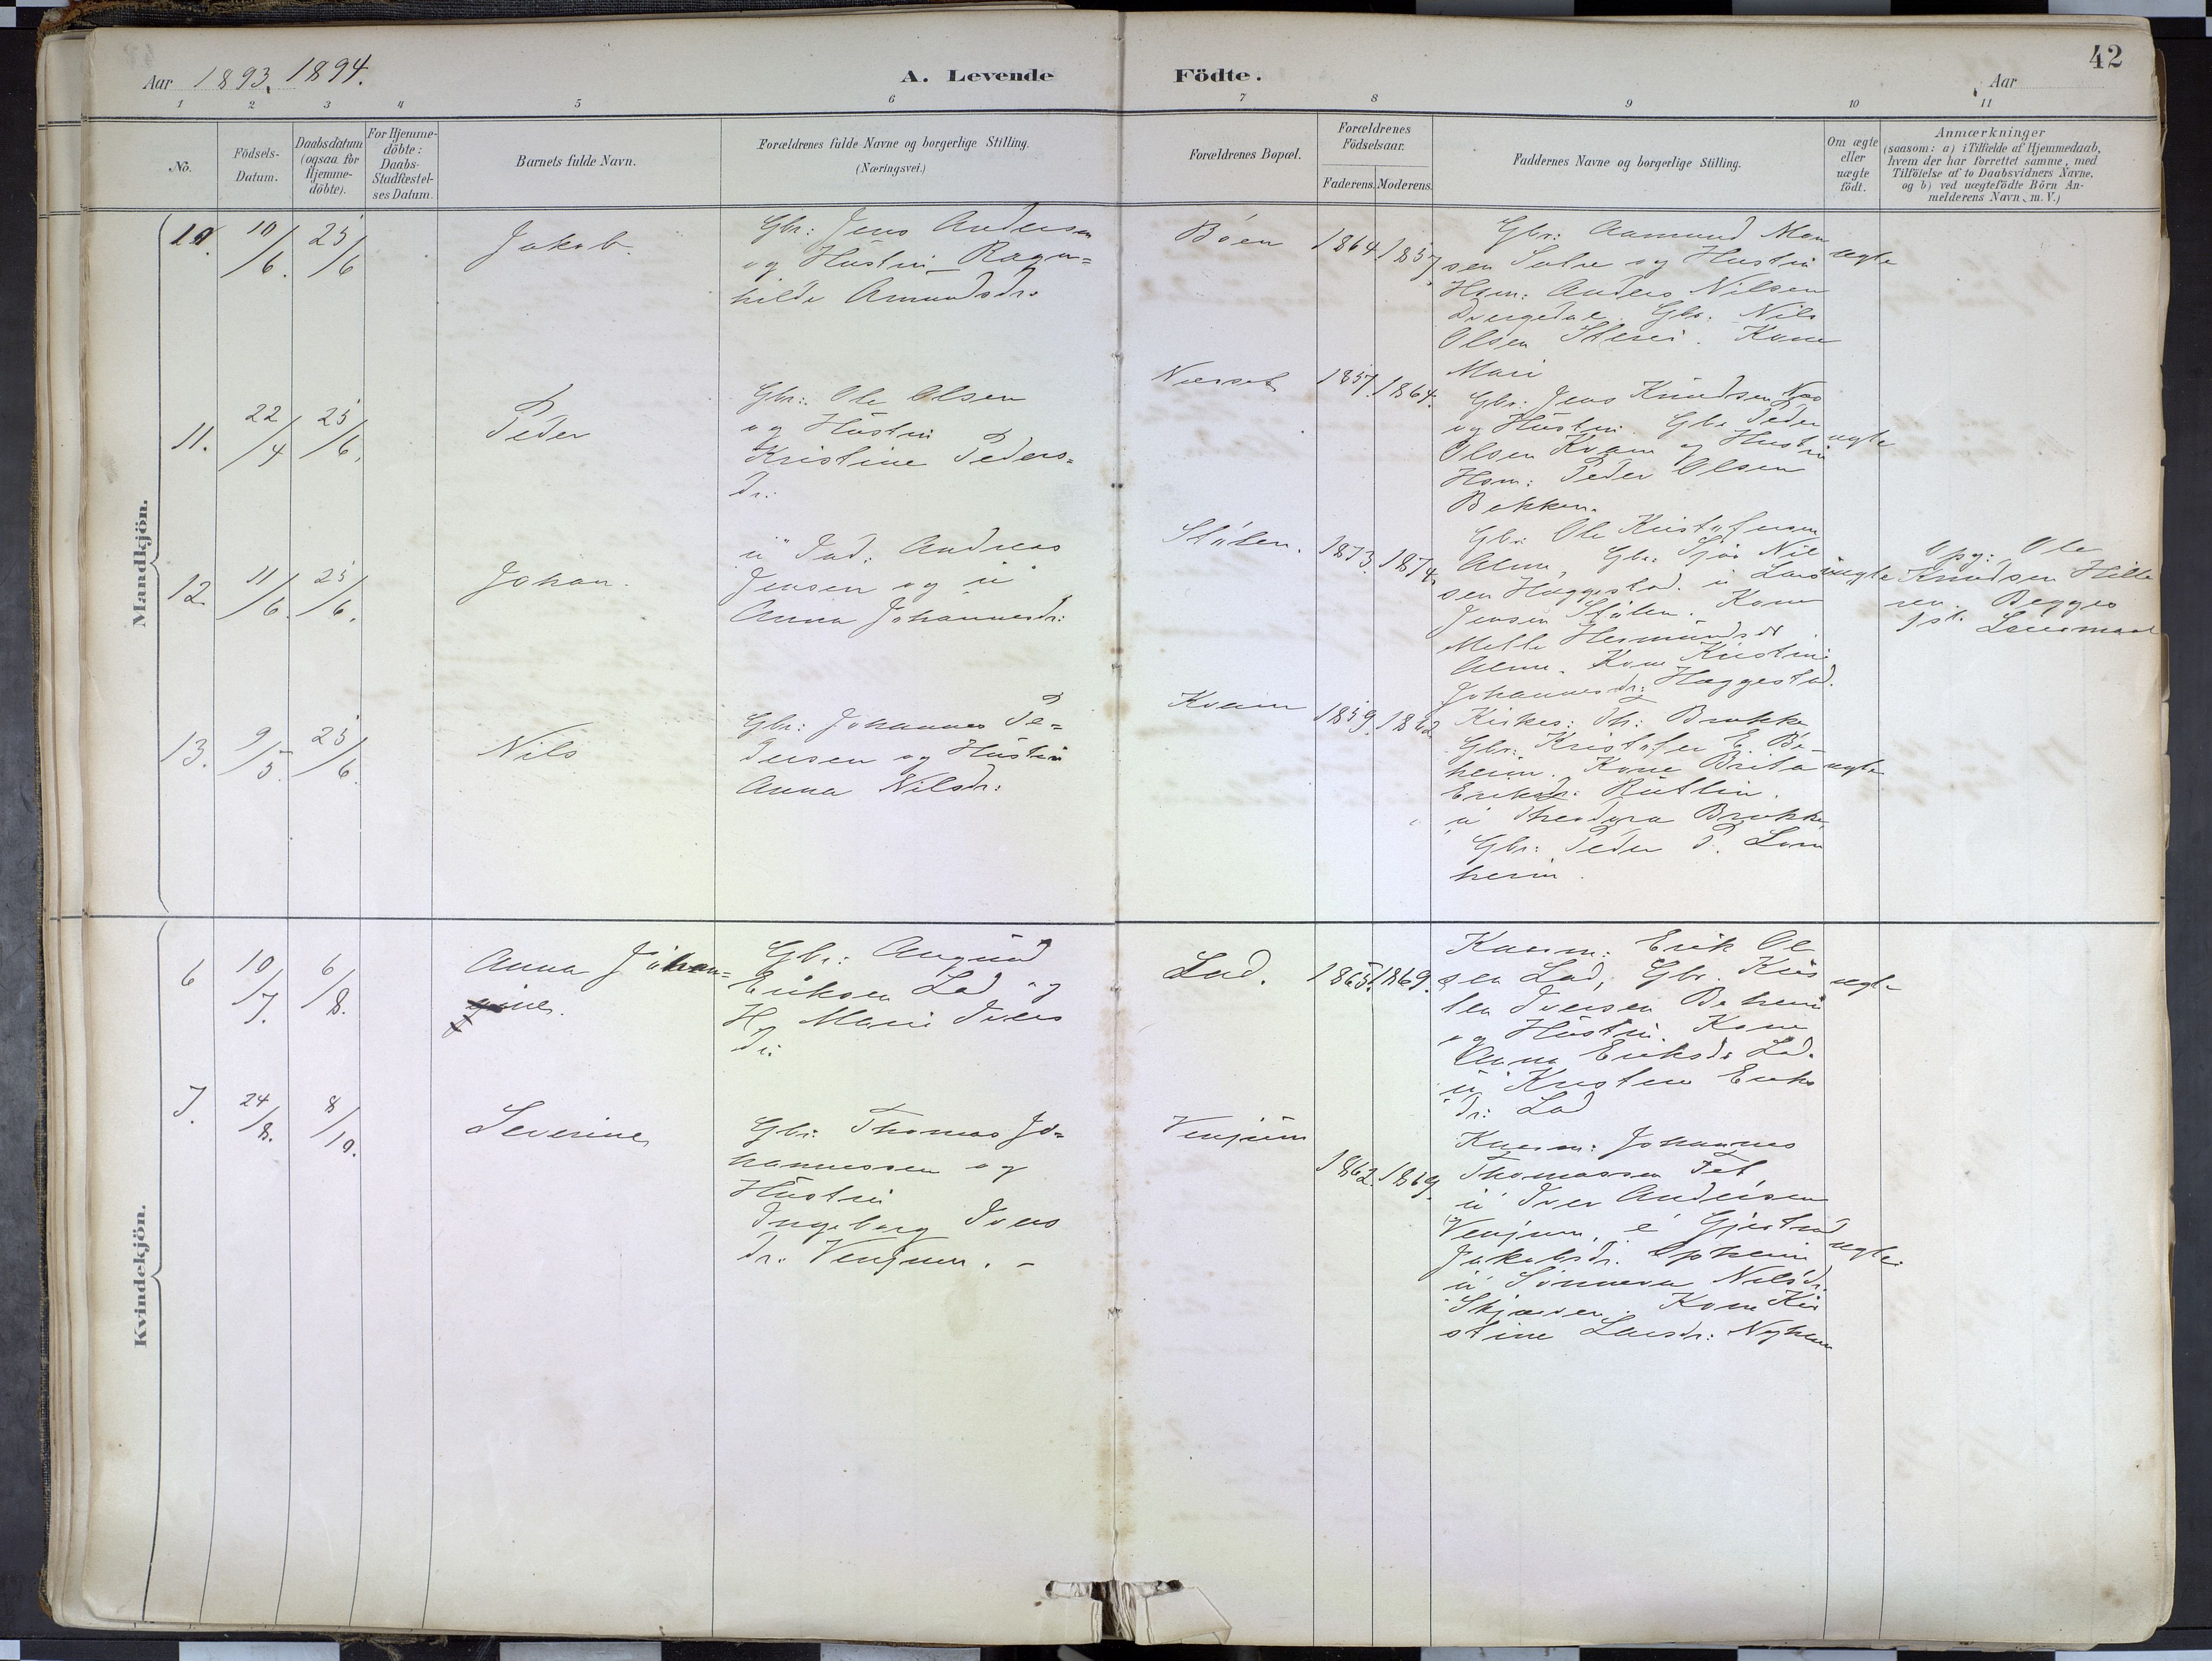 Aar 1893, 1894.
A. Levende Födte.
Aar
42
1 2 3 4 5 6 7 8 9 10 11
No.
Födsels-
Datum.
Daabsdatum
(ogsaa for
Hjemme-
döbte).
For Hjemme-
döbte:
Daabs-
Stadfæstel-
ses Datum.
Barnets fulde Navn.
Forældrenes fulde Navne og borgerlige Stilling.
(Næringsvei.)
Forældrenes Bopæl.
Forældrenes
Födselsaar.
Faderens. Moderens.
Faddernes Navne og borgerlige Stilling.
Om ægte
eller
uægte
födt.
Anmærkninger
(saasom: a) i Tilfælde af Hjemmedaab,
hvem der har forrettet samme, med
Tilföielse af to Daabsvidners Navne.
og b) ved uægtefödte Börn An-
melderens Navn m. V.)
Mandkjön.
10. 10/6. 25/6
Jakob
Gbr: Jens Andersen
og Hustru Ragn=
hilde Amundsdr:
Böen
1864. 1857.
Gbr: Aamund Mon
sen Solve og Hustru
Hsm: Anders Nilsen
Dvergedal. Gbr. Nils
Olsen Kone
Mari
ægte
11. 22/4 25/6.
Peder
Gbr: Ole Olsen
og Hustru
Kristine Peders=
dr:
Nærset
1857. 1864.
Gbr: Jens Knudsen
og Hustru. Gbr Peder
Olsen Kvam og Hustru
Hsm: Peder Olsen
Bekken.
ægte
12. 11/6. 25/6.
Johan.
Andreas
Jensen og u
Anna Johannesdr:
Stölen.
1873. 1874.
Gbr: Ole Kristofersen
Alme, Gbr: Nil
sen Haggestad. u Lars
Jensen Stölen. Kone
Hermundsdr
Alme. Kone Kristine
Johannesdr: Haggestad.
uægte
Opg: Ole
Knudsen Hille
ren. Begges
1ste Leiermaal
13. 9/5. 25/6.
Nils
Gbr: Johannes Pe=
dersen og Hustru
Anna Nilsdr:
Kvam
1859. 1862.
Kirkes: Th: Brukke
Gbr: Kristofer E. Bö-
heim. Kone Brita
Eriksdr: Rutlin.
u Theodora Brukke,
Gbr: Peder P. Lom
heim.
ægte
Kvindekjön.
6 10/7. 6/8.
Anna Johan=
ine.
Gbr: Angrim
Eriksen Lad og
H. Mari Ivers
dr:
Lad.
1865. 1869.
Kaarm: Erik Ol
sen Lad, Gbr. Kris
ten Iversen Böheim
og Hustru. Kone
Anna Eriksdr Lad.
u Kristine Eriks
dr: Lad
ægte
7. 24/8. 8/10.
Severine
Gbr: Thomas Jo=
hannessen og
Hustru
Ingeborg Ivers
dr. Venjum. -
Venjum
1862. 1869.
Kaarm: Johannes
Thomassen Fet,
u Iver Andersen
Venjum, e Gjertrud
Jakobsdr. Opheim
u Sönneva Nilsdr.
Skjærven. Kone Kri
stine Larsdr: Nyheim
ægte.